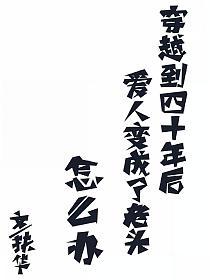 穿越到四十年后
爱人变成了老头
怎么办
玄轶华